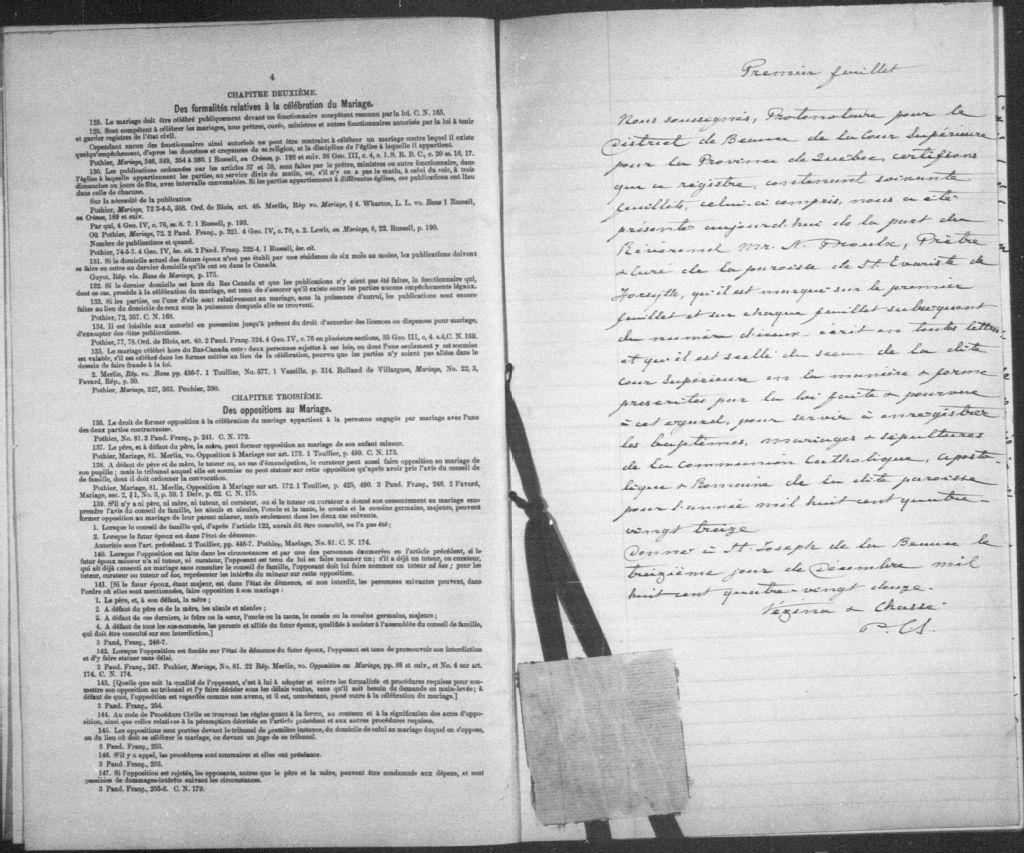 4
CHAPITRE DEUXIÈME.
Des formalités relatives à la célébration du Mariage.
128. Le mariage doit être célébré publiquement devant un fonctionnaire compétent reconnu par la loi. C. N. 165.
129. Sont compétents à célébrer les mariages, tous prêtres, curés, ministres et autres fonctionnaires autorisés par la loi à tenir
et garder registres de l'état civil.
Cependant aucun des fonctionnaires ainsi autorisés ne peut être contraint à célébrer un mariage contre lequel il existe
quelqu'empêchement, d'après les doctrines et croyances de sa religion, et la discipline de l'église à laquelle il appartient.
Pothier, Mariage, 348, 349, 354 à 360. 1 Russell, on Crimes, p. 192 et suiv. 36 Geo. III, c. 4, s. 1. S. R. B. C., c. 20 ss. 16, 17.
130. Les publications ordonnées par les articles 57 et 58, sont faites par le prêtre, ministre ou autre fonctionnaire, dans
l'église à laquelle appartiennent les parties, au service divin du matin, ou, s'il n'y en a pas le matin, à celui du soir, à trois
dimanches ou jours de fête, avec intervalle convenable. Si les parties appartiennent à différentes églises, ces publications ont lieu
dans celle de chacune.
Sur la nécessité de la publication
Pothier, Mariage, 72 3-4-5, 356. Ord. de Blois, art. 40. Merlin, Rép vo. Mariage, § 4. Wharton, L. L. vo. Bans 1 Russell,
on Crimes, 189 et suiv.
Par qui, 4 Geo. IV, c. 76, ss. 6. 7. 1 Russell, p. 193.
Où Pothier, Mariage, 72. 2 Pand. Franç., p. 321. 4 Geo. IV, c. 76, s. 2. Lewis, on Mariage, 8, 22. Russell, p. 190.
Nombre de publications et quand.
Pothier, 74-5-7. 4 Geo. IV, loc. cit. 2 Pand. Franç. 322-4. 1 Russell, loc. cit.
131. Si le domicile actuel des futurs époux n'est pas établi par une résidence de six mois au moins, les publications doivent
se faire en outre au dernier domicile qu'ils ont eu dans le Canada.
Guyot, Rép. vis. Bans de Mariage, p. 175.
132. Si le dernier domicile est hors du Bas Canada et que les publications n'y aient pas été faites, le fonctionnaire qui,
dans ce cas, procède à la célébration du mariage, est tenu de s'assurer qu'il existe entre les parties aucuns empêchements légaux.
133. Si les parties, ou l'une d'elles sont relativement au mariage, sous la puissance d'autrui, les publications sont encore
faites au lieu du domicile de ceux sous la puissance desquels elle se trouvent.
Pothier, 72, 357. C. N. 168.
134. Il est loisible aux autorité en possession jusqu'à présent du droit d'accorder des licences ou dispenses pour mariage,
d'exempter des dites publications.
Pothier, 77, 78. Ord. de Blois, art. 40. 2 Pand. Franç. 324. 4 Geo. IV, c. 76 en plusieurs sections, 35 Geo. III, c. 4. s.4, C. N. 169.
135. Le mariage célébré hors du Bas-Canada entre deux personnes sujettes à ses lois, ou dont l'une seulement y est soumise
est valable, s'il est célébré dans les formes usitées au lieu de la célébration, pourvu que les parties n'y soient pas allées dans le
dessein de faire fraude à la loi.
2. Merlin, Rép. vo. Bans pp. 436-7. 1 Toullier, No. 577. 1 Vazeille, p. 314. Rolland de Villargues, Mariage, No. 22, 3,
Favard, Rép., p. 30.
Pothier, Mariage, 327, 363. Pouhier, 390.
CHAPITRE TROISIÈME.
Des oppositions au Mariage.
136. Le droit de former opposition à la célébration du mariage appartient à la personne engagée par mariage avec l'une
des deux parties contractantes.
Pothier, No. 81. 3 Pand. Franç., p. 241. C. N. 172.
137. Le père, et à défaut du père, la mère, peut former opposition au mariage de son enfant mineur.
Pothier, Mariage, 81. Merlin, vo. Opposition à Mariage sur art. 173. 1 Toullier, p. 489. C. N. 173.
138. A défaut de père et de mère, le tuteur ou, au cas d'émancipation, le curateur peut aussi faire opposition au mariage de
son pupille ; mais le tribunal auquel elle est soumise ne peut statuer sur cette opposition qu'après avoir pris l'avis du conseil de
de famille, dont il doit ordonner la convocation.
Pothier, Mariage, 81. Merlin, Opposition à Mariage sur art. 172. 1 Toullier, p. 425, 490. 3 Pand. Franç., 248. 2 Favard,
Mariage, sec. 2, § 1, No. 3, p. 59. 1 Delv. p. 62. C. N. 175.
139. S'il n'y a ni père, ni mère, ni tuteur, ni curateur, ou si le tuteur ou curateur a donné son consentement au mariage sans
prendre l'avis du conseil de famille, les aïeuls et aïeules, l'oncle et la tante, le cousin et la cousine germains, majeurs, peuvent
former opposition au mariage de leur parent mineur, mais seulement dans les deux cas suivants.
1. Lorsque le conseil de famille qui, d'après l'article 122, aurait dû être consulté, ne l'a pas été ;
2. Lorsque le futur époux est dans l'état de démence.
Autorités sous l'art. précédent. 2 Toullier, pp. 446-7. Pothier, Mariage, No. 81. C. N. 174.
140. Lorsque l'opposition est faite dans les circonstances et par une des personnes énumérées en l'article précédent, si le
futur époux mineur n'a ni tuteur, ni curateur, l'opposant est tenu de lui en faire nommer un ; s'il a déjà un tuteur, ou curateur,
qui ait déjà consenti au mariage sans consulter le conseil de famille, l'opposant doit lui faire nommer un tuteur ad hoc ; pour les
tuteur, curateur ou tuteur ad hoc, représenter les intérêts du mineur sur cette opposition.
141. [Si le futur époux, étant majeur, est dans l'état de démence, et non interdit, les personnes suivantes peuvent, dans
l'ordre où elles sont mentionnées, faire opposition à son mariage :
1. Le père, et, à son défaut, la mère ;
2. A défaut du père et de la mère, les aïeuls et aïeules ;
3. A défaut de ces derniers, le frère ou la sœur, l'oncle ou la tante, le cousin ou la cousine germains, majeurs ;
4. A défaut de tous les sus-nommés, les parents et alliés du futur époux, qualifiés à assister à l'assemblée du conseil de famille,
qui doit être consulté sur son interdiction.]
3 Pand, Franç., 246-7.
142. Lorsque l'opposition est fondée sur l'état de démence du futur époux, l'opposant est tenu de promouvoir son interdiction
et d'y faire statuer sans délai.
3 Pand. Franç., 247. Pothier, Mariage, No. 81. 22 Rép. Merlin, vo. Opposition au Mariage, pp. 86 et suiv., et No. 4 sur art.
174. C. N. 174.
143. [Quelle que soit la qualité de l'opposant, c'est à lui à adopter et suivre les formalités et procédures requises pour sou-
mettre son opposition au tribunal et l'y faire décider sous les délais voulus, sans qu'il soit besoin de demande en main-levée ; à
défaut de quoi, l'opposition est regardée comme non avenu, et il est, nonobstant, passé outre à la célébration du mariage.]
3 Pand. Franç., 254.
144. Au code de Procédure Civile se trouvent les règles quant à la forme, au contenu et à la signification des actes d'oppo-
sition, ainsi que celles relatives à la péremption décrétée en l'article précédent et aux autres procédures requises.
145. Les oppositions sont portées devant le tribunal de première instance, du domicile de celui au mariage duquel on s'oppose,
ou du lieu où doit se célébrer le mariage, ou devant un juge de ce tribunal.
3 Pand. Franç., 253.
146. S'il y a appel, les procédures sont sommaires et elles ont préséance.
3 Pand. Franç., 253.
147. Si l'opposition est rejetée, les opposants, autres que le père et la mère, peuvent être condamnés aux dépens, et sont
passibles de dommages-intérêts suivant les circonstances.
3 Pand. Franç., 255-6. C. N. 179.
Premier feuillet
Nous soussignés, Protonotaire pour le
District de Beauce de la Cour Supérieure
pour la Province de Québec, certifions
que ce registre, contenant soixante
feuillets, celui-ci compris, nous a été
présenté aujourd'hui de la part du
Révérend Mr. N. Proulx, Prêtre
& Curé de la paroisse de St. Evariste de
Forsyth, qu'il est marqué sur le premier
feuillet et sur chaque feuillet subséquent
du numéro d'iceux écrit en toutes lettres
et qu'il est scellé du sceau de la dite
Cour Supérieure en la manière & forme
prescrites par la loi faite & pourvue
à cet égard, pour servir à enregistrer
les baptêmes, mariages & sépultures
de la communion Catholique, aposto-
lique & Romaine de la dite paroisse
pour l'année mil huit cent quatre-
vingt treize
Donné à St. Joseph de la Beauce le
treizième jour de Décembre mil
huit cent quatre-vingt douze.
Vézina & Chassé
P. C. S.